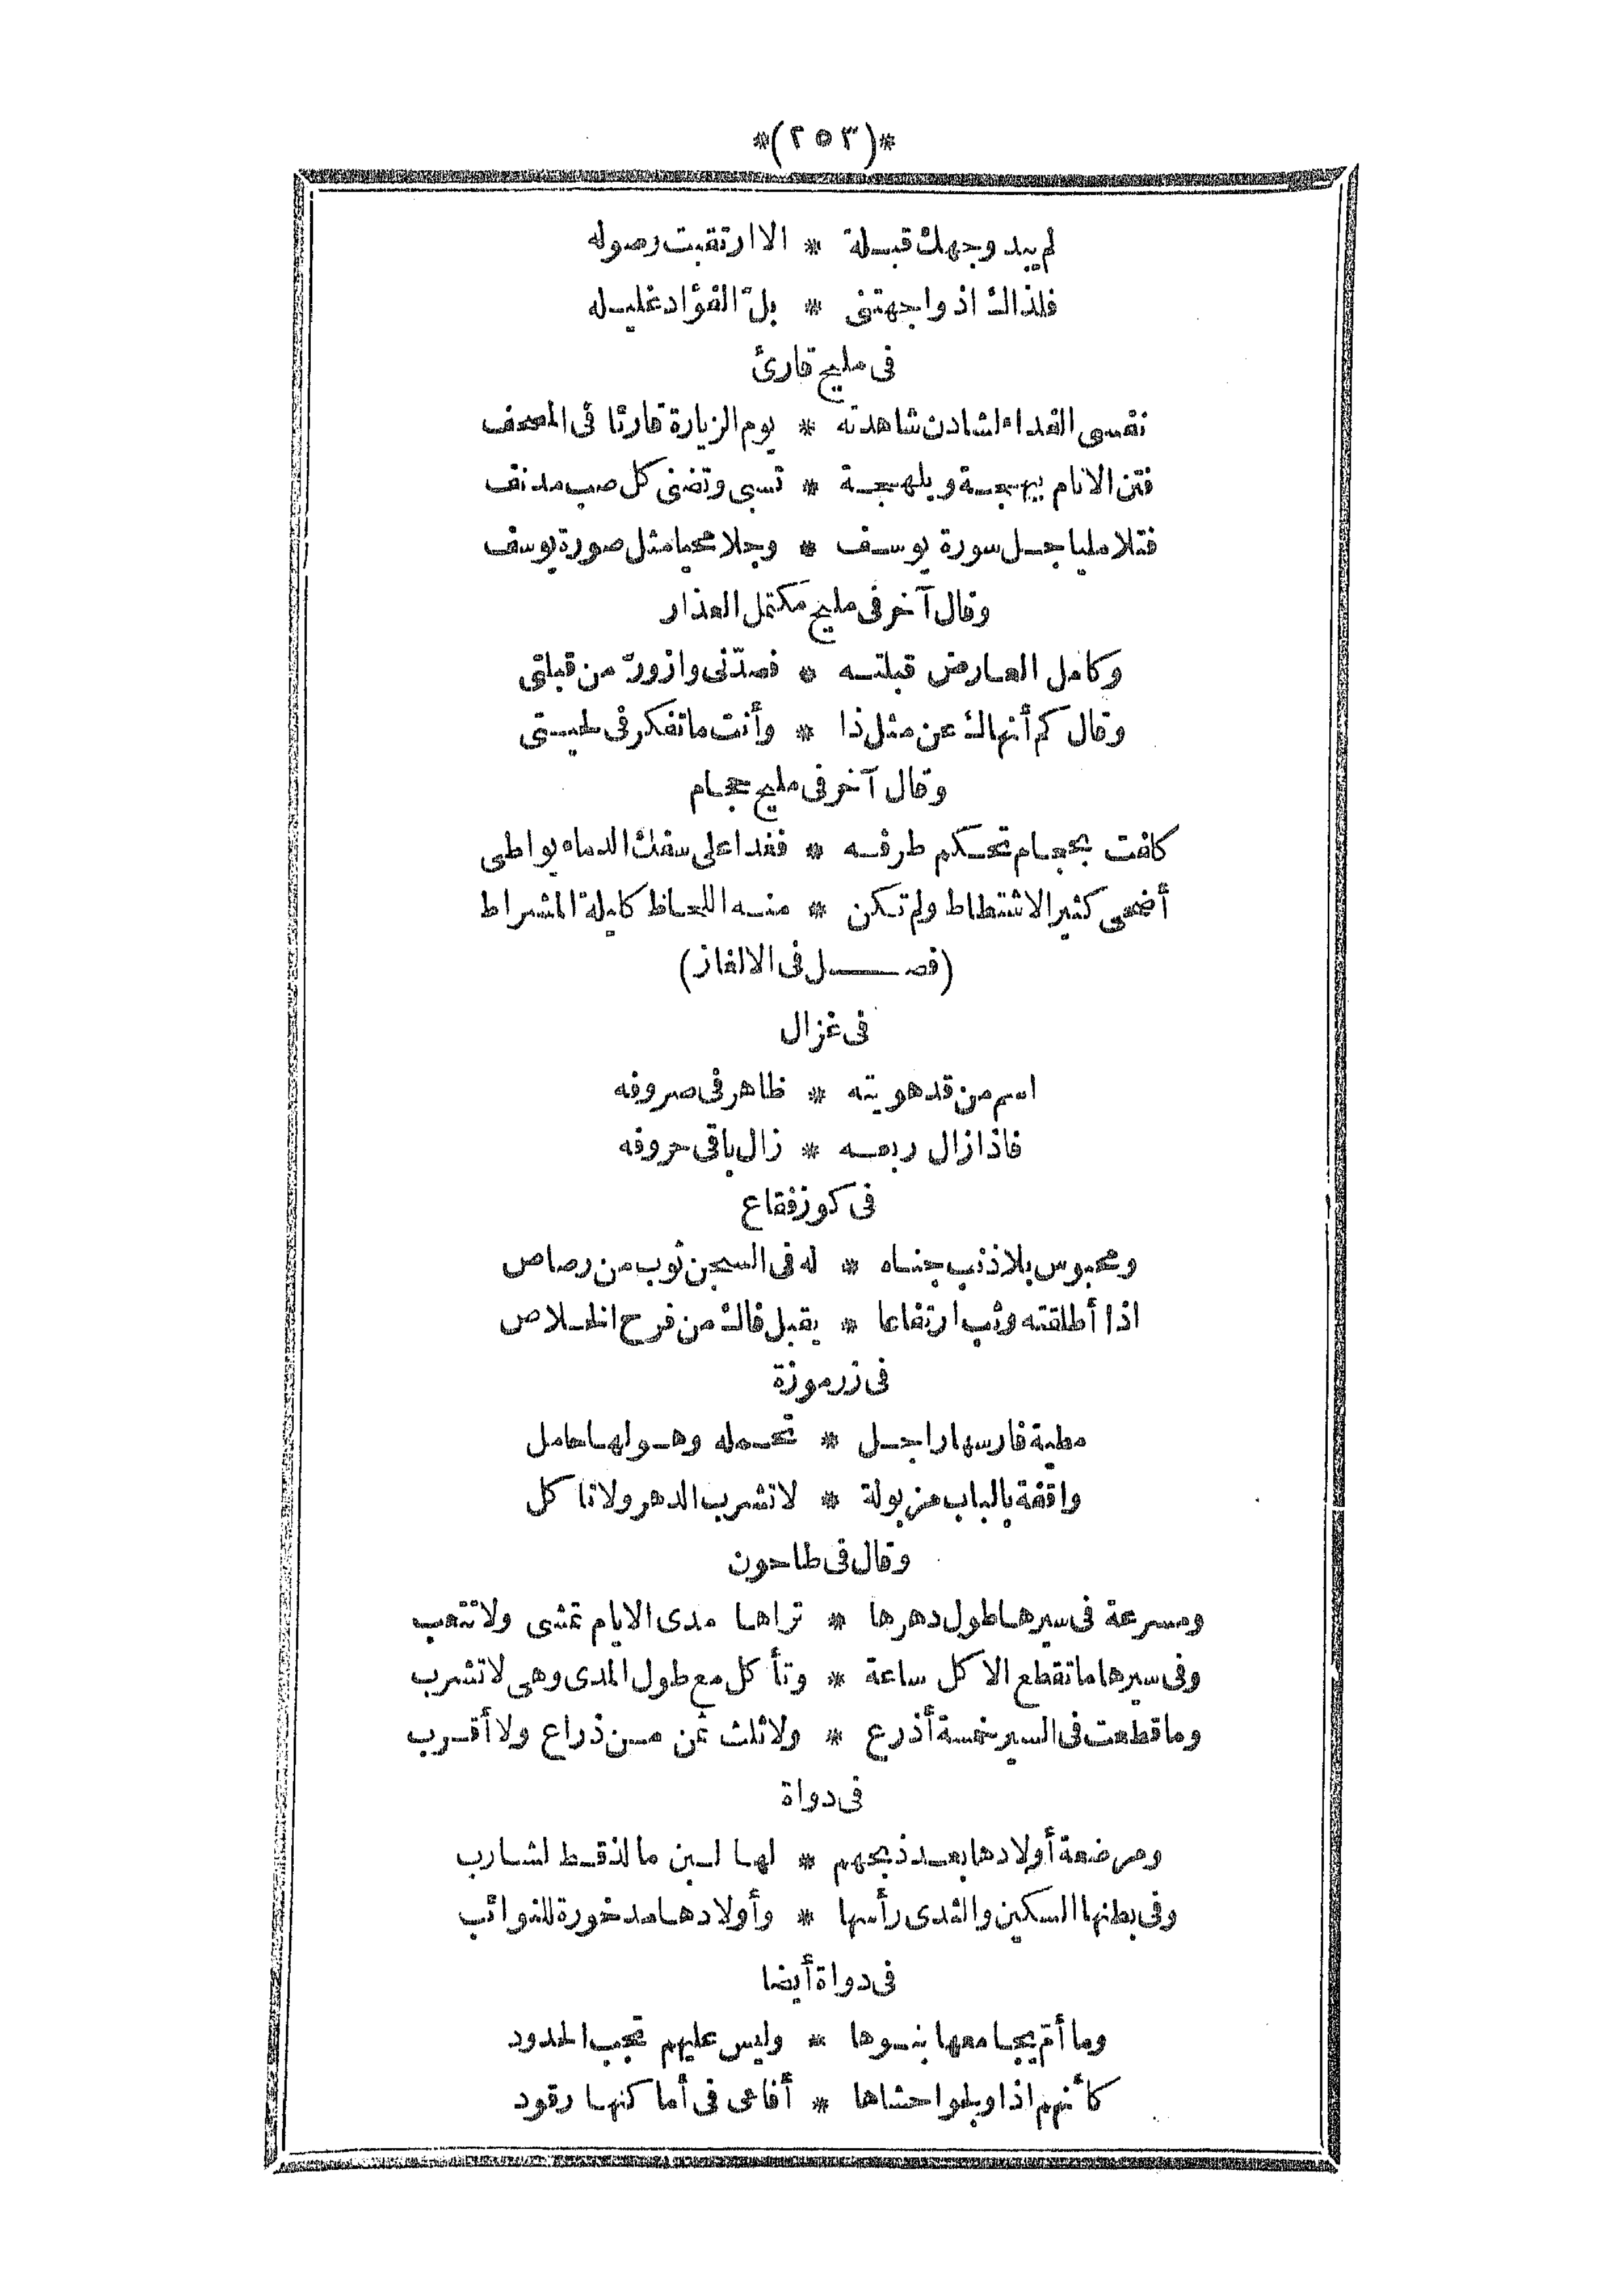 *(٢٥٣)*
لم يبد وجهك قبلة * الا ارتقبت وصوله
فلذاك اذ واجهتنى * بلّ الفؤاد غليله
فى مليح قارئ
نفسى الفداء لشادن شاهدته * يوم الزيارة قارئا فى المصحف
فتن الانام ببهجة وبلهجة * تسبى وتضنى كل صب مدنف
فتلا مليا جل سورة يوسف * وجلا محيا مثل صورة يوسف
وقال آخر فى مليح مكتمل العذار
وكامل العارض قبلته * فصدّنى وازورّ من قبلتى
وقال كم أنهاك عن مثل ذا * وأنت ما تفكر فى لحيتى
وقال آخر فى مليح حجام
كلفت بحجام تحكم طرفه * فغدا على سفك الدماء يواطى
أضحى كثير الاشتطاط ولم تكن * منه اللحاظ كليلة المشراط
(فصل فى الالغاز)
فى غزال
اسم من قد هويته * ظاهر فى صروفه
فاذا زال ربعه * زال باقى حروفه
فى كوز فقاع
ومحبوس بلا ذنب جناه * له فى السجن ثوب من رصاص
اذا أطلقته وثب ارتفاعا * يقبل فاك من فرح الخلاص
فى زرموزة
مطية فارسها راجل * تحمله وهو لها حامل
واقفة بالباب مزبولة * لا تشرب الدهر ولا تاكل
وقال فى طاحون
ومسرعة فى سيرها طول دهرها * تراها مدى الايام تمشى ولا تتعب
وفى سيرها ما تقطع الا كل ساعة * وتأكل مع طول المدى وهى لا تشرب
وما قطعت فى السير خمسة أذرع * ولا ثلث ثمن من ذراع ولا أقرب
فى دواة
ومرضعة أولادها بعد ذبحهم * لها لبن ما لذ قط لشارب
وفى بطنها السكين والثدى رأسها * وأولادها مدخورة للنوائب
فى دواة أيضا
وما أمّ يجامعها بنوها * وليس عليهم تجب الحدود
كأنهم اذا ولجوا حشاها * أفاعى فى أماكنها رقود